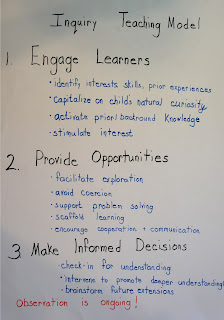 Inquiry Teaching Model
1. Engage Learners
• identify interests, skills, prior experiences
• Capitalize on child's natural curiosity
• activate prior/background Knowledge
• stimulate interest
2. Provide Opportunities
• facilitate exploration
• avoid coercion
• support problem solving
• scaffold learning
• encourage cooperation + communication
3. Make Informed Decisions
• check-in for understanding
• intervene to promote deeper understanding
• brainstorm future extensions
Observation is ongoing!